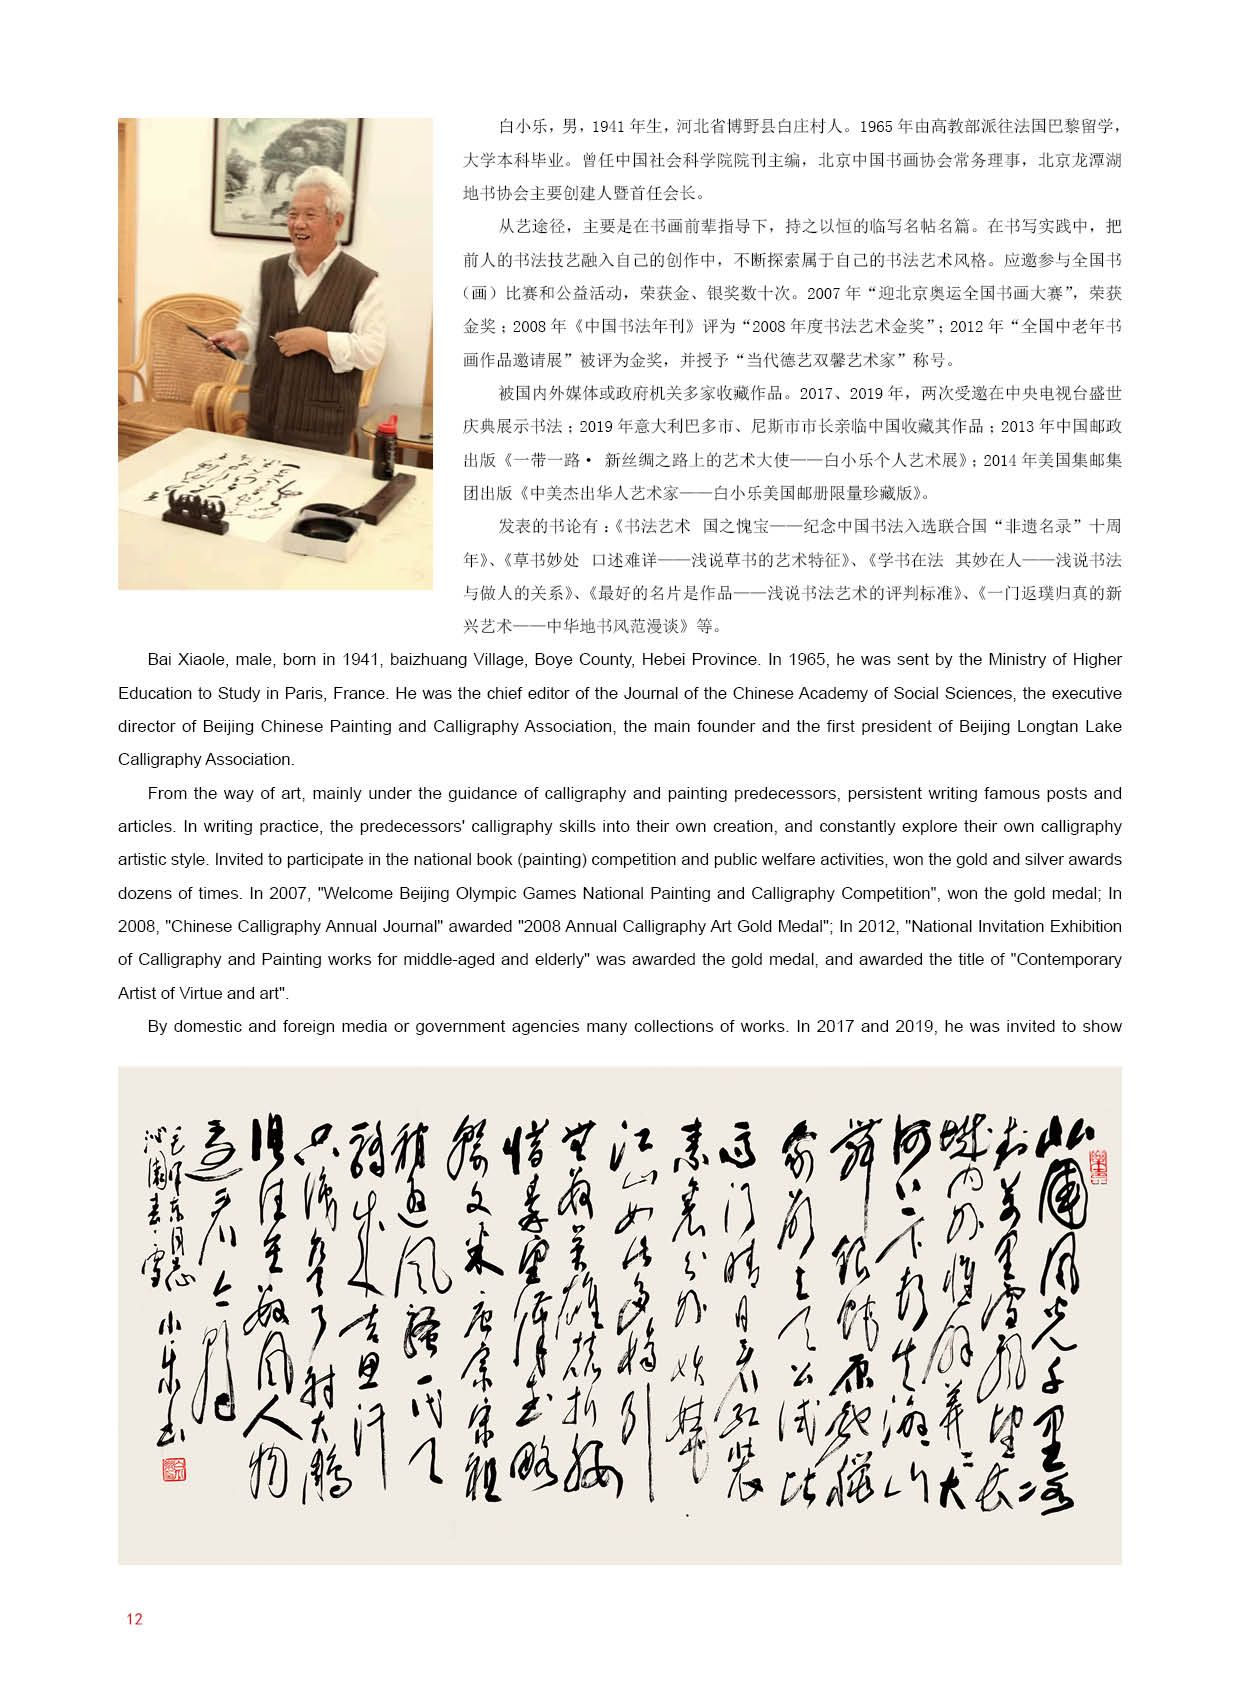 白小乐，男，1941 年生，河北省博野县白庄村人。1965 年由高教部派往法国巴黎留学，
大学本科毕业。曾任中国社会科学院院刊主编，北京中国书画协会常务理事，北京龙潭湖
地书协会主要创建人暨首任会长。
从艺途径，主要是在书画前辈指导下，持之以恒的临写名帖名篇。在书写实践中，把
前人的书法技艺融入自己的创作中，不断探索属于自己的书法艺术风格。应邀参与全国书
（画）比赛和公益活动，荣获金、银奖数十次。2007 年“迎北京奥运全国书画大赛”，荣获
金奖；2008 年《中国书法年刊》评为“2008 年度书法艺术金奖”；2012 年“全国中老年书
画作品邀请展”被评为金奖，并授予“当代德艺双馨艺术家”称号。
被国内外媒体或政府机关多家收藏作品。2017、2019 年，两次受邀在中央电视台盛世
庆典展示书法；2019 年意大利巴多市、尼斯市市长亲临中国收藏其作品；2013 年中国邮政
出版《一带一路· 新丝绸之路上的艺术大使——白小乐个人艺术展》；2014 年美国集邮集
团出版《中美杰出华人艺术家——白小乐美国邮册限量珍藏版》。
发表的书论有：《书法艺术 国之愧宝——纪念中国书法入选联合国“非遗名录”十周
年》、《草书妙处 口述难详——浅说草书的艺术特征》、《学书在法 其妙在人——浅说书法
与做人的关系》、《最好的名片是作品——浅说书法艺术的评判标准》、《一门返璞归真的新
兴艺术——中华地书风范漫谈》等。
Bai Xiaole, male, born in 1941, baizhuang Village, Boye County, Hebei Province. In 1965, he was sent by the Ministry of Higher
Education to Study in Paris, France. He was the chief editor of the Journal of the Chinese Academy of Social Sciences, the executive
director of Beijing Chinese Painting and Calligraphy Association, the main founder and the first president of Beijing Longtan Lake
Calligraphy Association.
From the way of art, mainly under the guidance of calligraphy and painting predecessors, persistent writing famous posts and
articles. In writing practice, the predecessors' calligraphy skills into their own creation, and constantly explore their own calligraphy
artistic style. Invited to participate in the national book (painting) competition and public welfare activities, won the gold and silver awards
dozens of times. In 2007, "Welcome Beijing Olympic Games National Painting and Calligraphy Competition", won the gold medal; In
2008, "Chinese Calligraphy Annual Journal" awarded "2008 Annual Calligraphy Art Gold Medal"; In 2012, "National Invitation Exhibition
of Calligraphy and Painting works for middle-aged and elderly" was awarded the gold medal, and awarded the title of "Contemporary
Artist of Virtue and art".
By domestic and foreign media or government agencies many collections of works. In 2017 and 2019, he was invited to show
北国风光千里冰
封万里雪飘望长
城内外惟余莽莽大
河上下顿失滔滔山
舞银蛇原驰蜡
象欲与天公试比
高
须晴日看红装
素裹分外妖娆
江山如此多娇引
无数英雄竞折腰
惜秦皇汉武略
输文采唐宗宋祖
稍逊风骚一代天
骄成吉思汗
只识弯弓射大雕
俱往矣数风流人物
还看今朝
毛泽东同志
沁园春·雪
小乐书
12